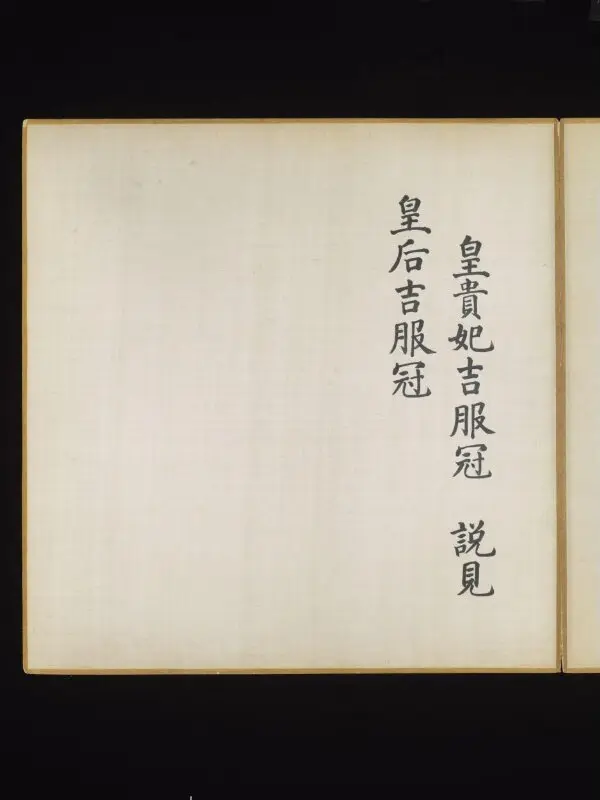 皇貴妃吉服冠　説見
皇后吉服冠